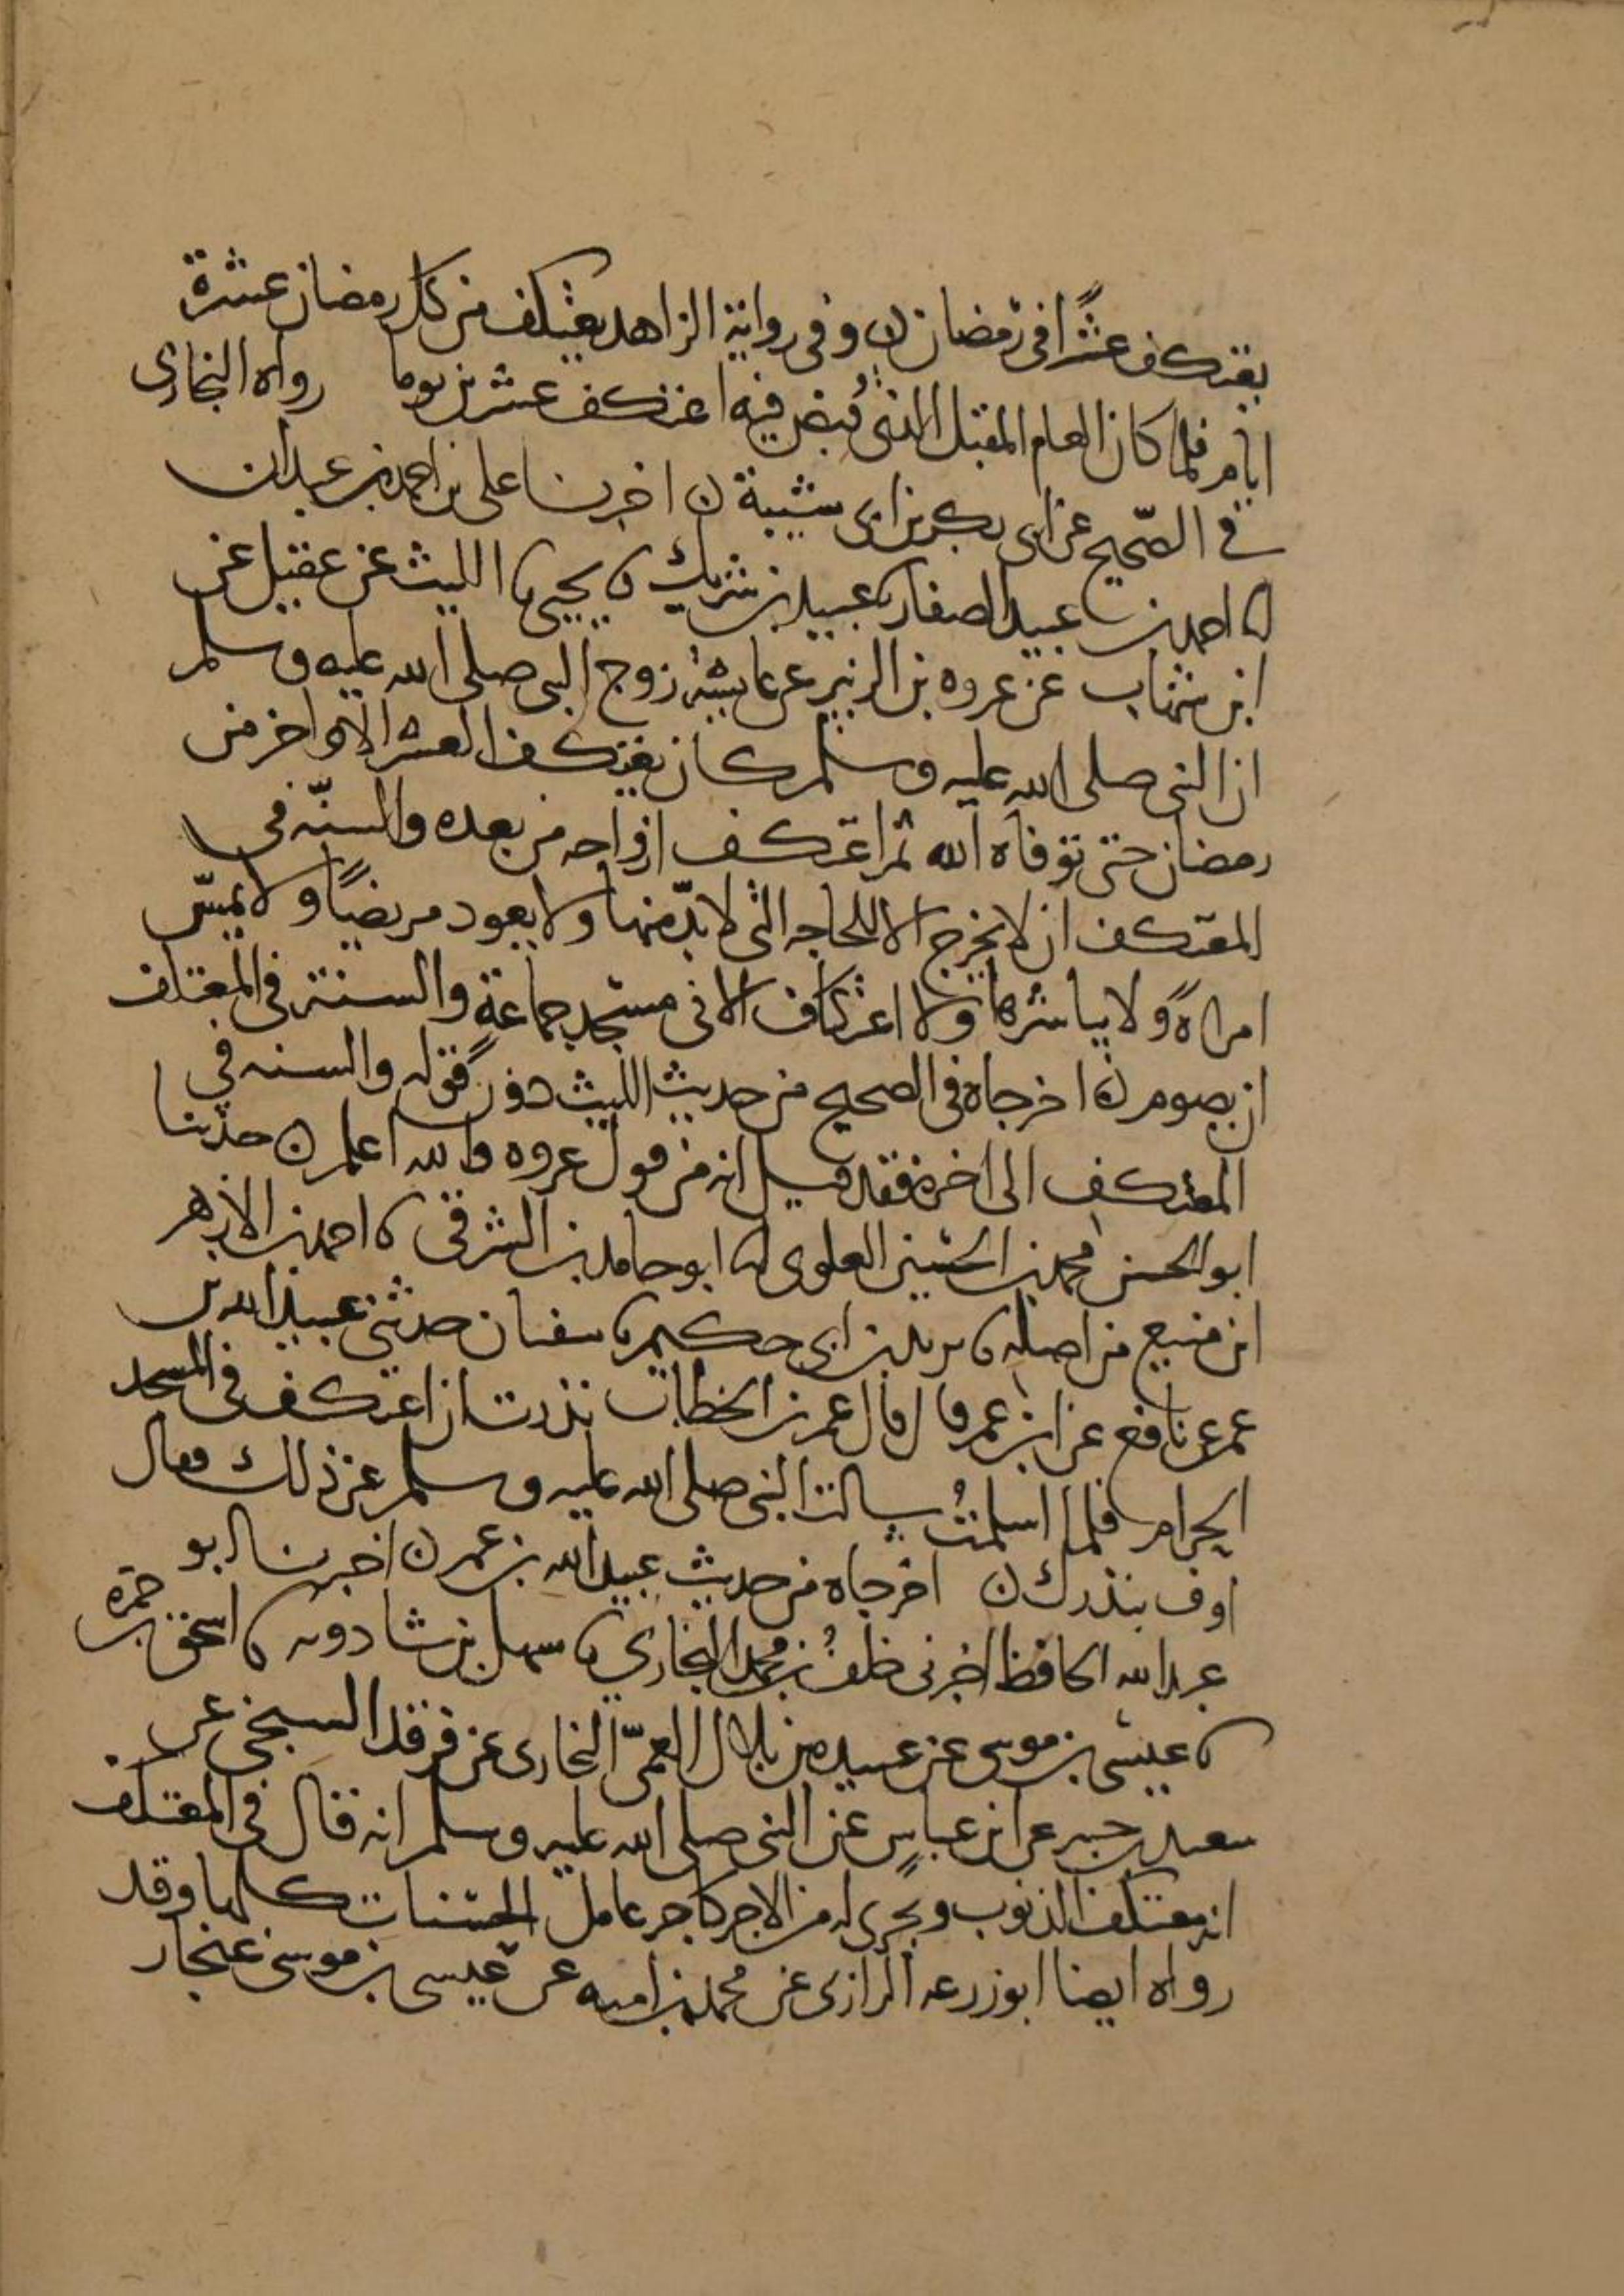 يعتكف عشرًا في رمضان ن وفي رواية الزاهد يعتكف من كل رمضان عشرة
ايام فلما كان العام المقبل الذي قُبض فيه اعتكف عشرين يوما رواه البخاري
في الصّحيح عن ابى بكر بن ابى شيبة ن اخبرنا على بن احمد بن عبدان
انا احمد بن عبيد الصفار نا عبيد بن شريك نا يحيى نا الليث عن عقيل عن
ابن شهاب عن عروه بن الزبير عن عايشة زوج النبى صلى الله عليه وسلم
ان النبى صلى الله عليه وسلم كان يعتكف العشر الاواخر من
رمضان حتى توفاه الله ثم اعتكف ازواجه من بعده والسنّه في
المعتكف ان لا يخرج الا للحاجه التى لا بدّ منها ولا يعود مريضًا ولا يمسّ
امراةً ولا يباشرها ولا اعتكاف الا فى مسجد جماعةٍ والسنة فى المعتكف
ان يصوم ن اخرجاه فى الصحيح من حديث الليث دون قوله والسنه في
المعتكف الى اخره فقد قيل انه من قول عروه والله اعلم ن حدثنا
ابو الحسن محمد بن الحسين العلوى انا ابو حامد بن الشرقى نا احمد بن الازهر
ابن منيع من اصله نا يزيد بن ابى حكيم نا سفيان حدثنى عبيد الله بن
عمر عن نافع عن ابن عمر قال قال عمر بن الخطاب نذرت ان اعتكف فى المسجد
الحرام فلما اسلمتُ سالت النبى صلى الله عليه وسلم عن ذلك فقال
اوف بنذرك ن اخرجاه من حديث عبيد الله بن عمر ن اخبرنا ابو
عبد الله الحافظ اخبرنى خلفُ بن محمد البخارى نا سهل بن شادويه نا اسحق بن حمزه
نا عيسى بن موسى عن عبيده بن بلال العمّى البخارى عن فرقد السبخى عن
سعيد بن جبير عن ابن عباسٍ عن النبى صلى الله عليه وسلم انه قال فى المعتكف
انه معتكف الذنوب ويجرى له من الاجر كاجر عامل الحسنات كلها وقد
رواه ايضا ابو زرعه الرازى عن محمد بن اميه عن عيسى بن موسى غنجار